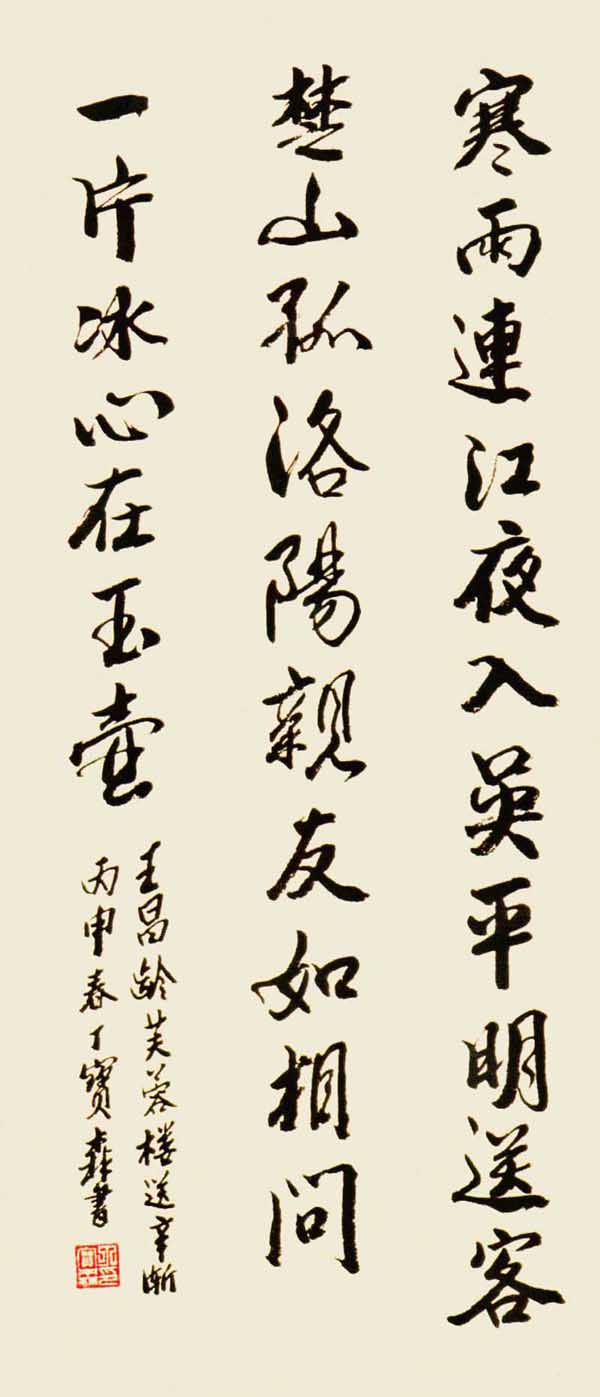 寒雨連江夜入吳平明送客
楚山孤洛陽親友如相问
一片冰心在玉壺
王昌齡芙蓉楼送辛漸
丙申春丁寶森書